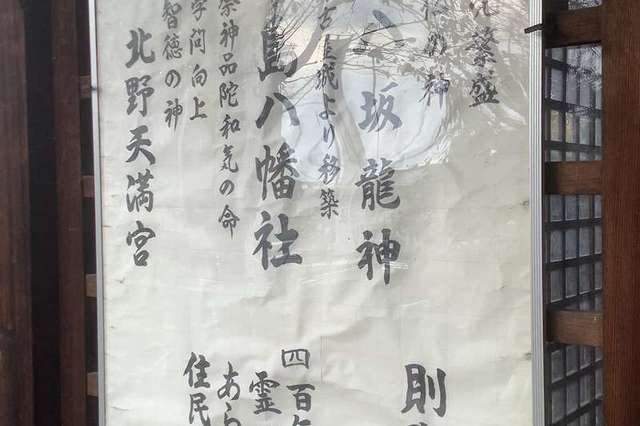 繁盛
の神
八坂龍神
城より移築
島八幡社
祭神品陀和気の命
学問向上
智徳の神
北野天満宮
則
四百
霊
あら
住民